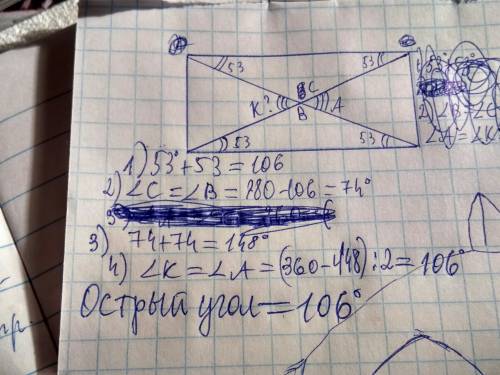 53 53
K? C A
B
53 53
1) 53°+53=106
2) ∠C=∠B=180-106=74°
3) 74+74=148°
4) ∠K=∠A=(360-148):2=106°
Острый угол=106°